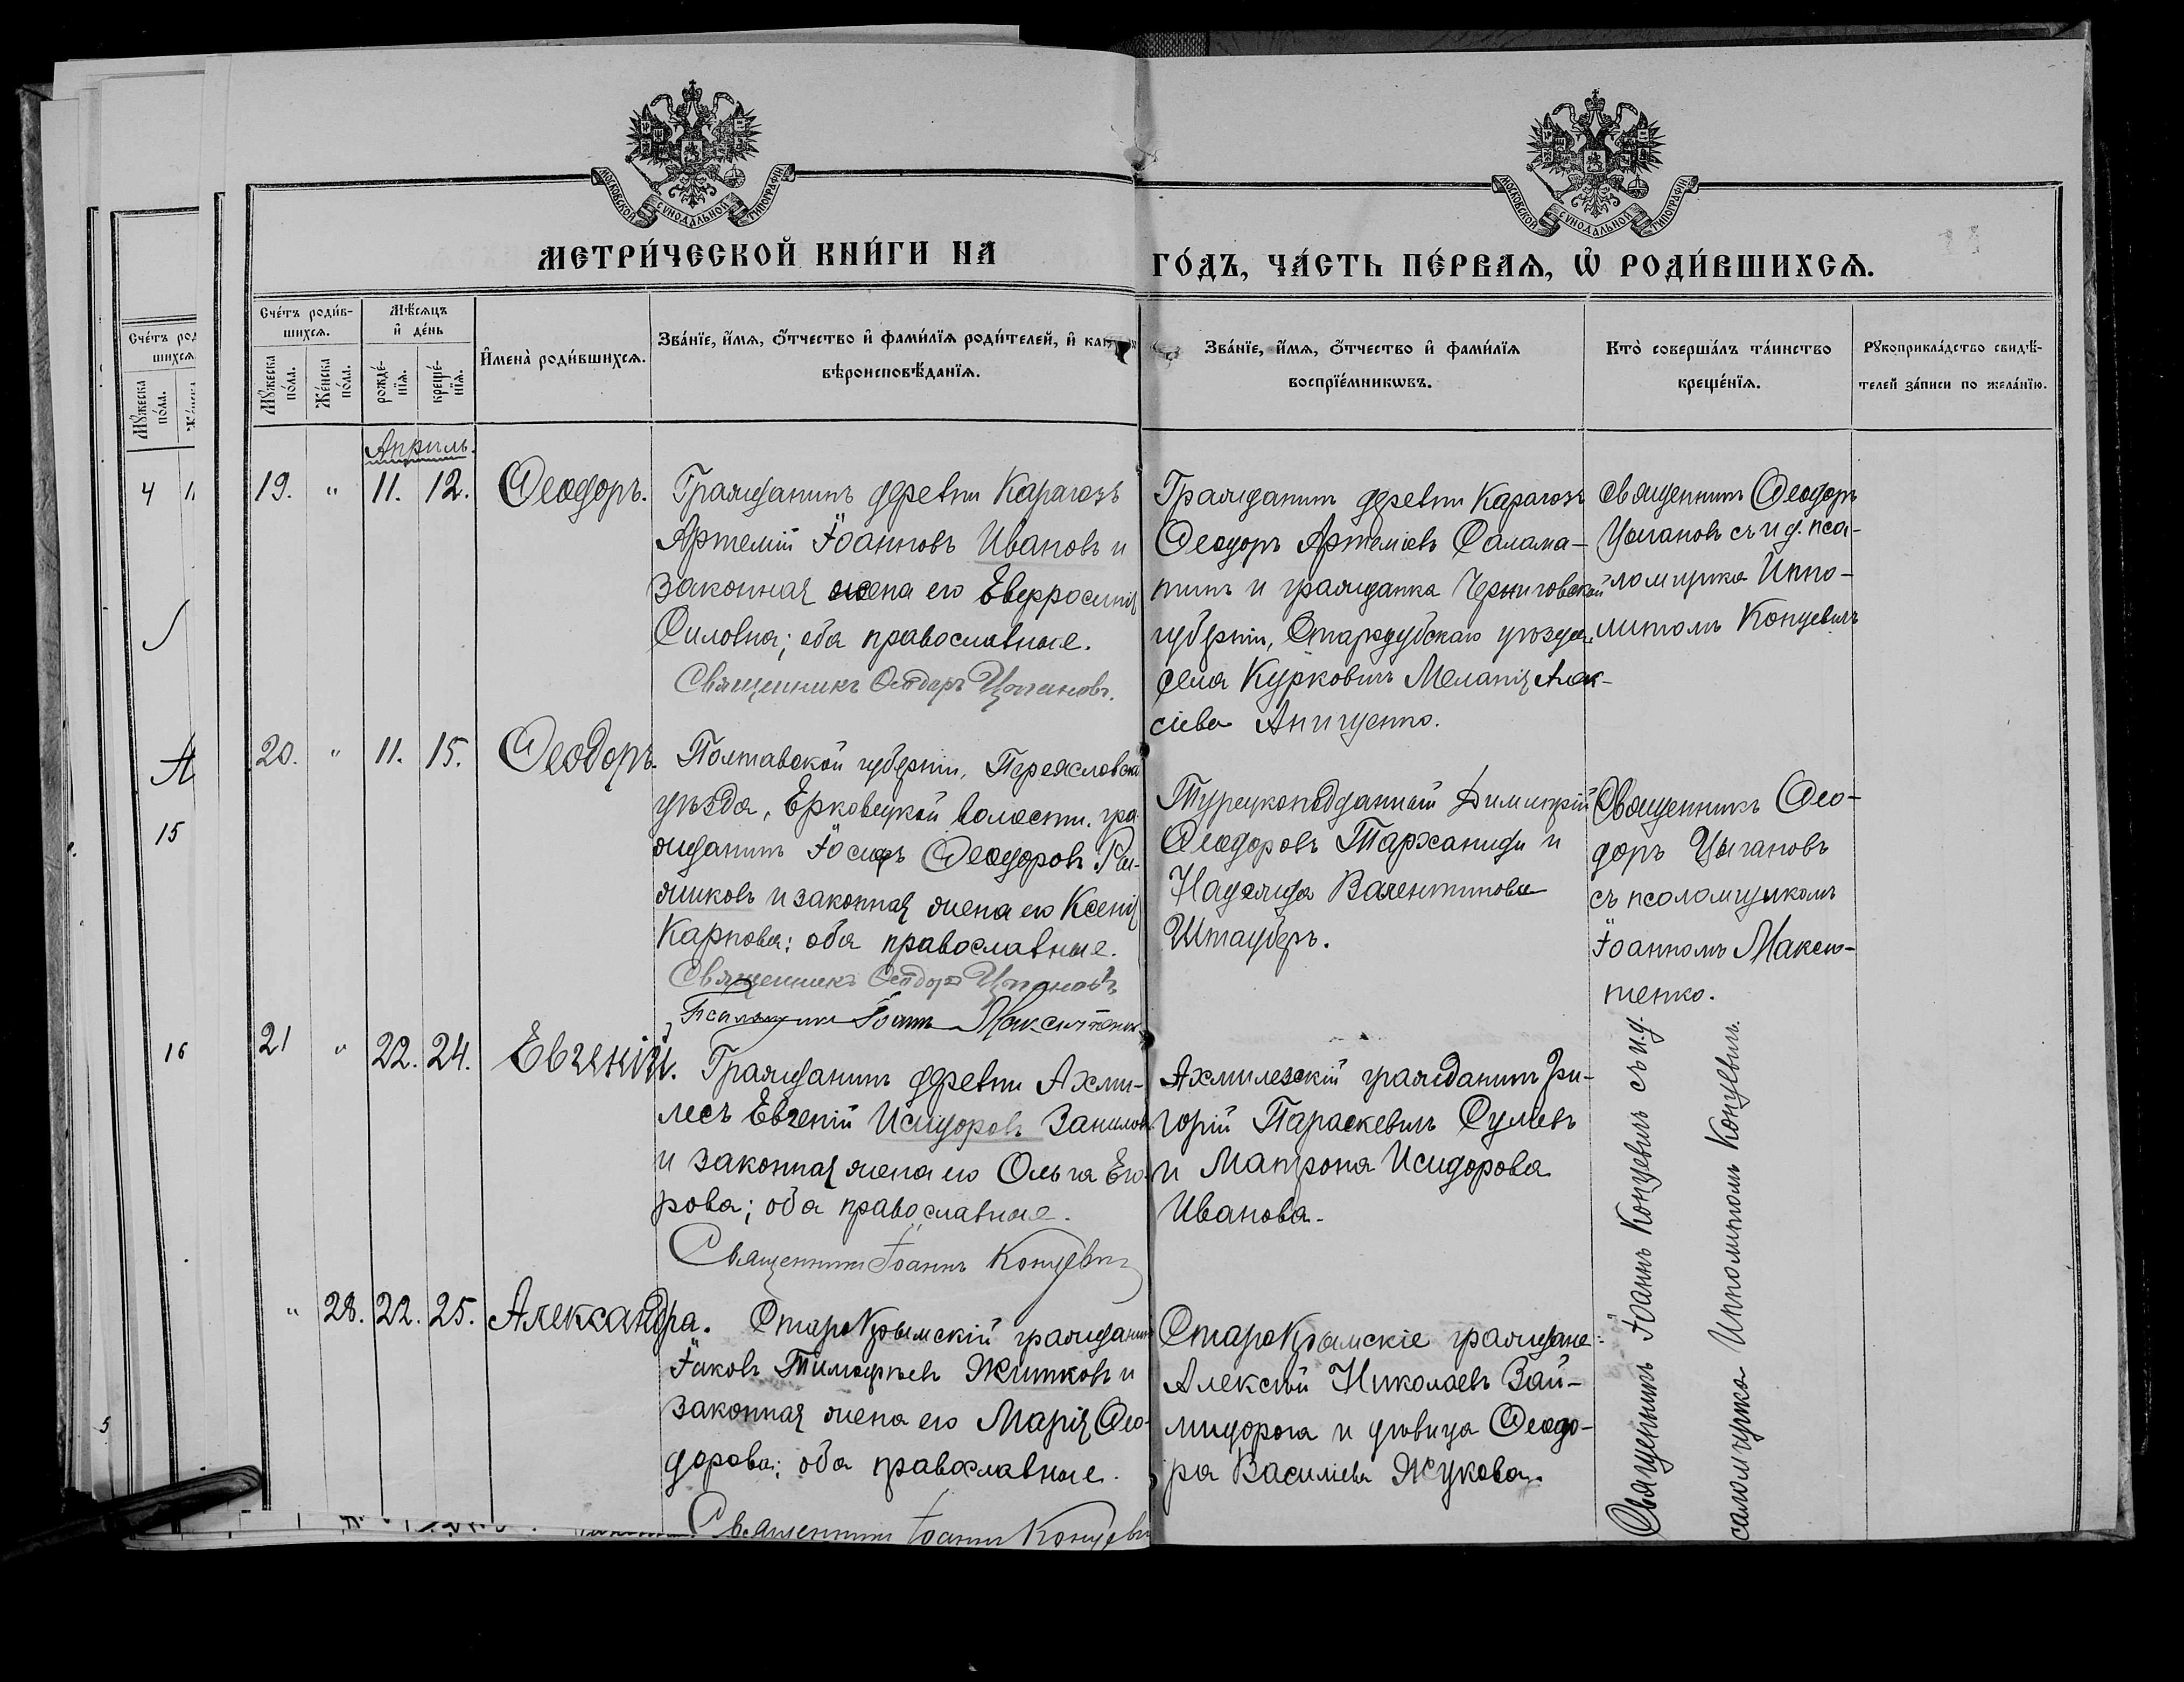 МОСКОВСКОЙ СУНОДАЛЬНОЙ ТИПОГРАФІИ
МОСКОВСКОЙ СУНОДАЛЬНОЙ ТИПОГРАФІИ
МЕТРИ́ЧЕСКОЙ КНИ́ГИ НА
ГО́ДЪ, ЧА́СТЬ ПЕ́РВАѦ, Ѡ҆ РОДИ́ВШИХСѦ.
Сче́тъ роди́в-
шихсѧ.
Мѣ́сѧцъ
и҆ де́нь
Мꙋ́жеска по́ла.
Же́нска по́ла.
рожде́-
нїѧ.
креще́-
нїѧ.
И҆мена̀ роди́вшихсѧ.
Зва́нїе, и҆́мѧ, ѻ҆́тчество и҆ фами́лїѧ роди́телей, и҆
вѣроисповѣ́данїѧ.
Зва́нїе, и҆́мѧ, ѻ҆́тчество и҆ фами́лїѧ
воспрїе́мникѡвъ.
Кто̀ соверша́лъ та́инство
креще́нїѧ.
Рꙋкоприкла́дство свидѣ́-
телей за́писи по жела́нїю.
Сче́тъ
шихсѧ
Мꙋ́жеска по́ла.
4
15
16
5
Апрѣль.
19. " 11. 12. Ѳеодоръ.
Гражданинъ деревни Карагозъ
Артемій Іоанновъ Ивановъ и
законная жена его Евфросинія
Силовна; оба православные.
Священникъ Ѳеодоръ Цыгановъ.
Гражданинъ деревни Карагозъ
Ѳеодоръ Артеміевъ Салама-
тинъ и гражданка Черниговской
губерніи, Стародубскаго уѣзда
села Курковичъ Меланія Алек-
сіева Анищенко.
Священникъ Ѳеодоръ
Цыгановъ съ и.д. пса-
ломщика Иппо-
литомъ Концевичъ
20. " 11. 15. Ѳеодоръ.
Полтавской губерніи, Переяславска
уѣзда, Ерковецкой волости, гра
жданинъ Іосифъ Ѳеодоровъ
и законная жена его Ксенія
Карпова; оба православные.
Священникъ Ѳеодоръ Цыгановъ
Псаломщикъ Іоаннъ Максютенко
Турецкоподданный Димитрій
Ѳеодоровъ Тарханиди и
Надежда Валентинова
Штауберъ.
Священникъ Ѳео-
доръ Цыгановъ
съ псаломщикомъ
Іоанномъ Максю-
тенко.
21 " 22. 24. Евгеній.
Гражданинъ деревни Ахми-
лезъ Евгеній Исидоровъ
и законная жена его Ольга Его-
рова; оба православные.
Священникъ Іоаннъ Концевичъ
Ахмилезскій гражданинъ Гри-
горій Параскевичъ Сулевъ
и Матрона Исидорова
Иванова.
Священникъ Іоаннъ Концевичъ съ и.д.
саломщика Ипполитомъ Концевичъ.
" 28. 22. 25. Александра.
СтароКрымскій гражданинъ
Іаковъ Тимоѳеевъ Житковъ и
законная жена его Марія Ѳео-
дорова; оба православные.
Священникъ Іоаннъ Концевичъ
СтароКрымскіе граждане:
Алексѣй Николаевъ Зай-
мидорога и дѣвица Ѳеодо-
ра Василіева Жукова.